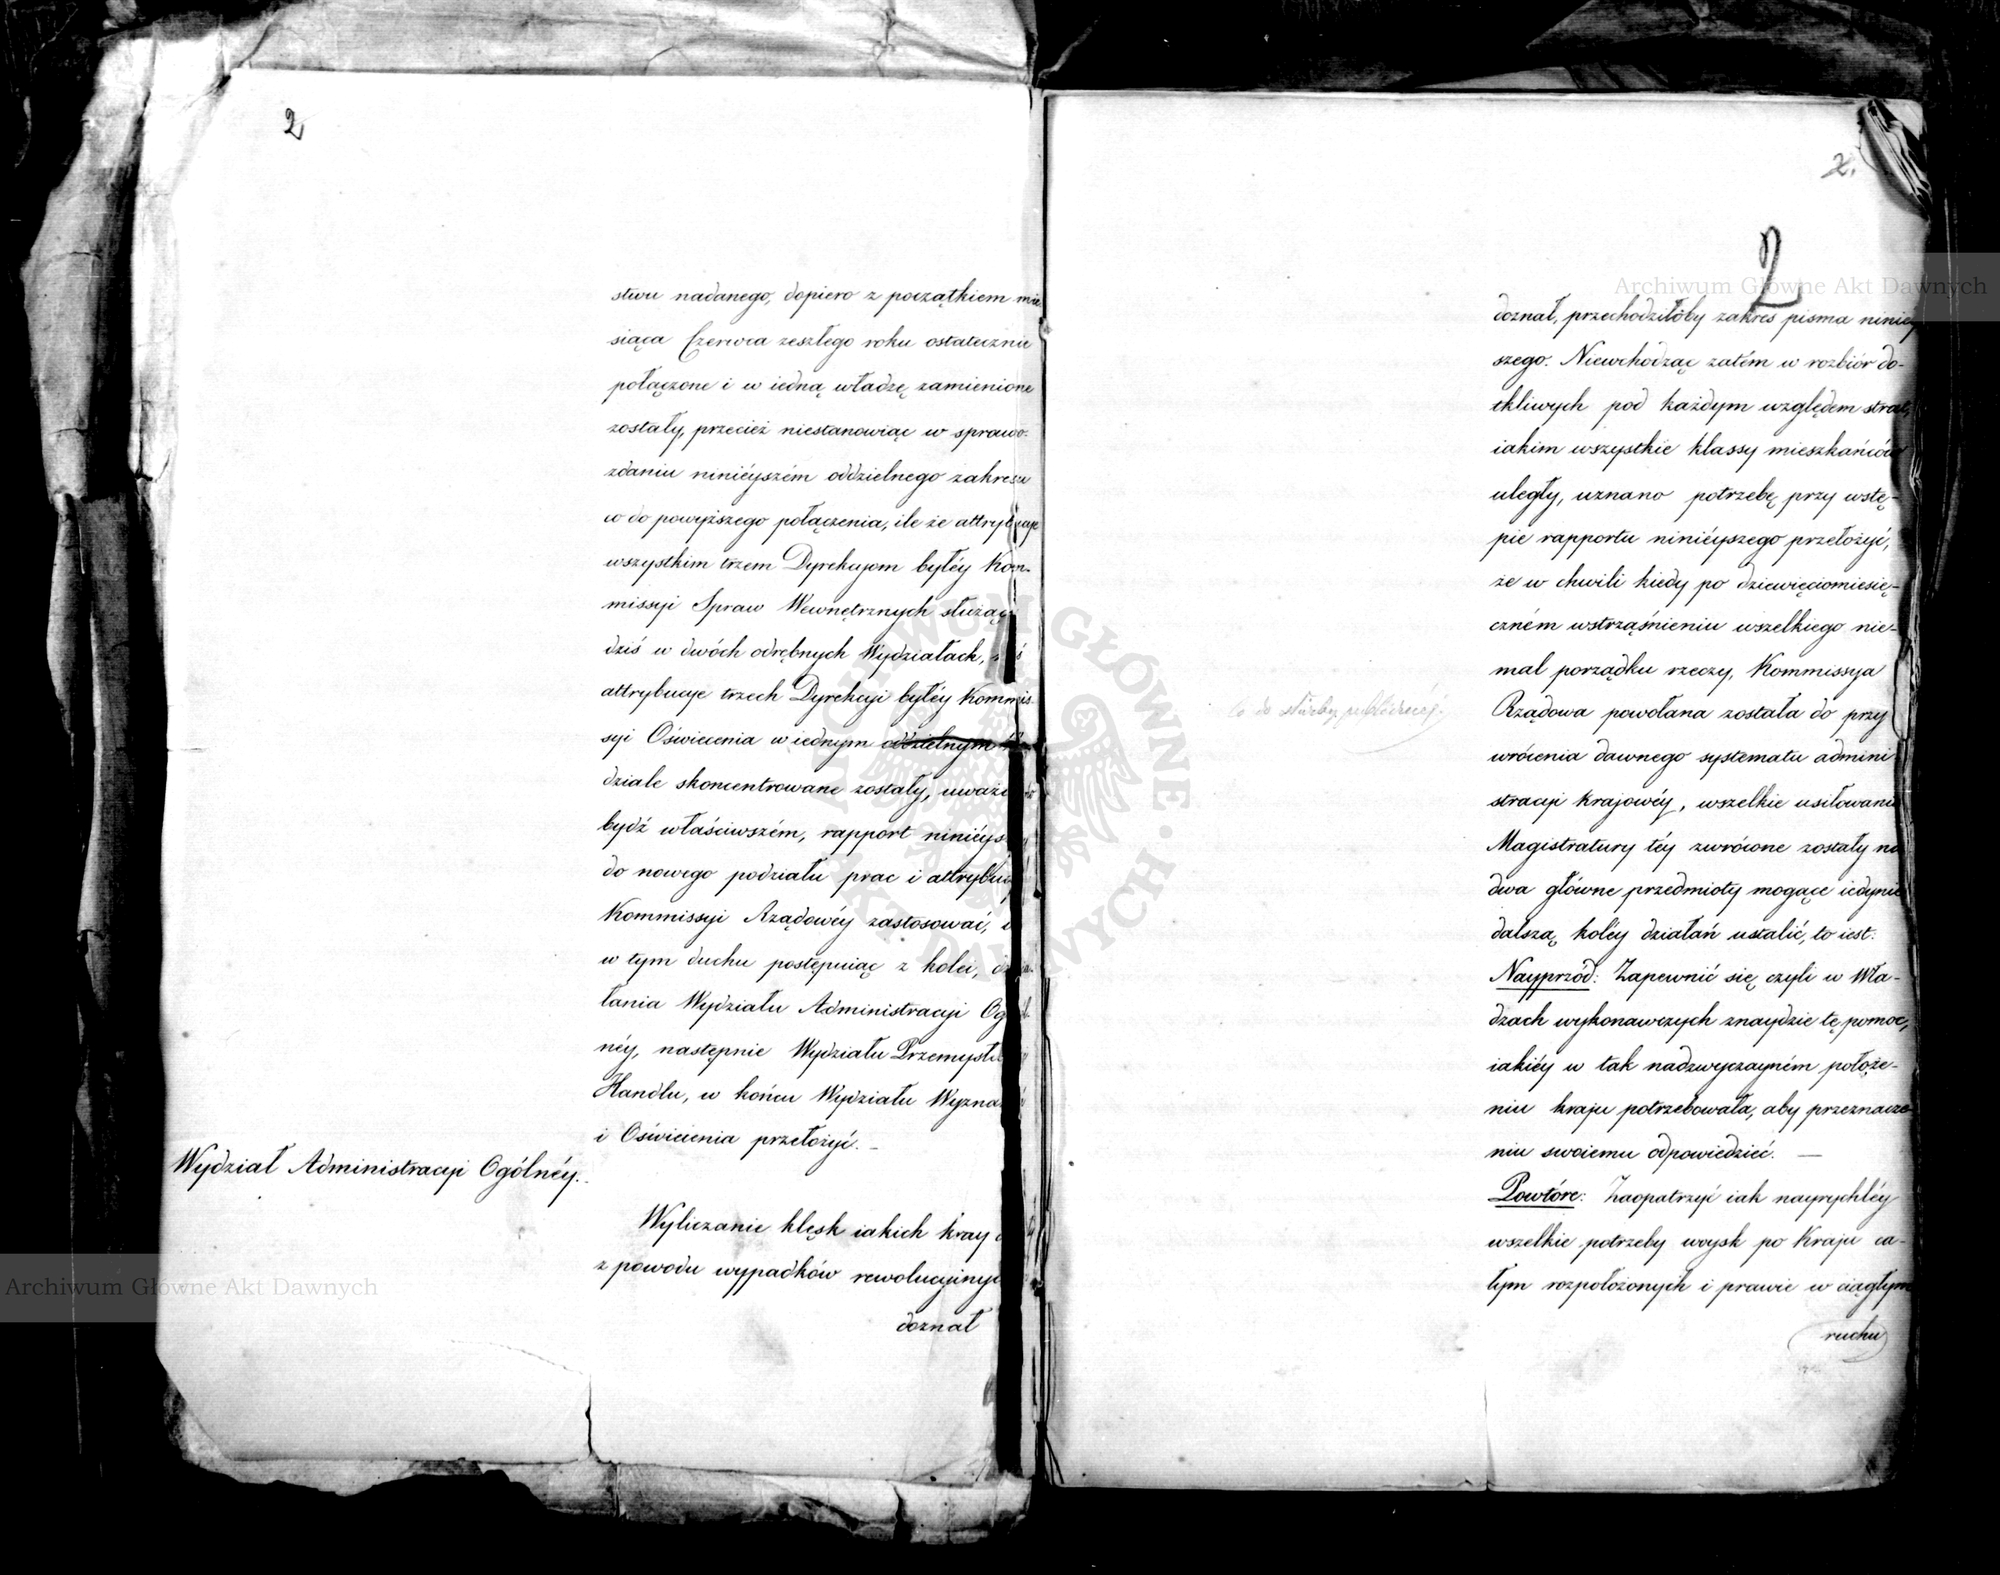 2
stwu nadanego, dopiero z początkiem mie
siąca Czerwca zeszłego roku ostatecznie
połączone i w iedną władzę zamienione
zostały, przecież niestanowiąc w sprawo-
zdaniu ninieyszém oddzielnego zakresu
co do powyższego połączenia, ile że attrybucye
wszystkim trzem Dyrekcyom byłéy Kom-
missyi Spraw Wewnętrznych służące
dziś w dwóch odrębnych Wydziałach,
attrybucye trzech Dyrekcyi byłéy Kommis-
syi Oświecenia w iednym oddzielnym
dziale skoncentrowane zostały, uważa
bydź właściwszém, rapport niniéys
do nowego podziału prac i attrybucy
Kommissyi Rządowéy zastosować, i
w tym duchu postępuiąc z kolei, dzia-
łania Wydziału Administracyi Ogól-
néy, następnie Wydziału Przemysłu
Handlu, w końcu Wydziału Wyznań
i Oświecenia przełożyć. –
Wydział Administracyi Ogólnéy.
Wyliczanie klęsk iakich kray
z powodu wypadków rewolucyinych
doznał
2.
2
doznał, przechodziłoby zakres pisma niniey
szego. Niewchodząc zatém w rozbiór do-
tkliwych pod każdym względem strat,
iakim wszystkie klassy mieszkańców
uległy, uznano potrzebę przy wstę-
pie rapportu niniéyszego przełożyć,
że w chwili kiedy po dziewięciomiesię-
czném wstrząśnieniu wszelkiego nie-
mal porządku rzeczy, Kommissya
Rządowa powołana została do przy
wrócenia dawnego systematu admini
stracyi krajowéy, wszelkie usiłowania
Magistratury téy zwrócone zostały na
dwa główne przedmioty mogące iedynie
dalszą koléy działań ustalić, to iest.
Nayprzód: Zapewnić się, czyli w Wła-
dzach wykonawczych znaydzie tę pomoc,
iakiéy w tak nadzwyczayném położe-
niu kraju potrzebowała, aby przeznacze-
niu swoiemu odpowiedzieć. —
Powtóre: Zaopatrzyć iak nayrychléy
wszelkie potrzeby woysk po Kraju ca-
łym rozpołożonych i prawie w ciągłym
ruchu
Co do służby
Archiwum Główne Akt Dawnych
Archiwum Główne Akt Dawnych
ARCHIWUM GŁÓWNE · AKT DAWNYCH ·